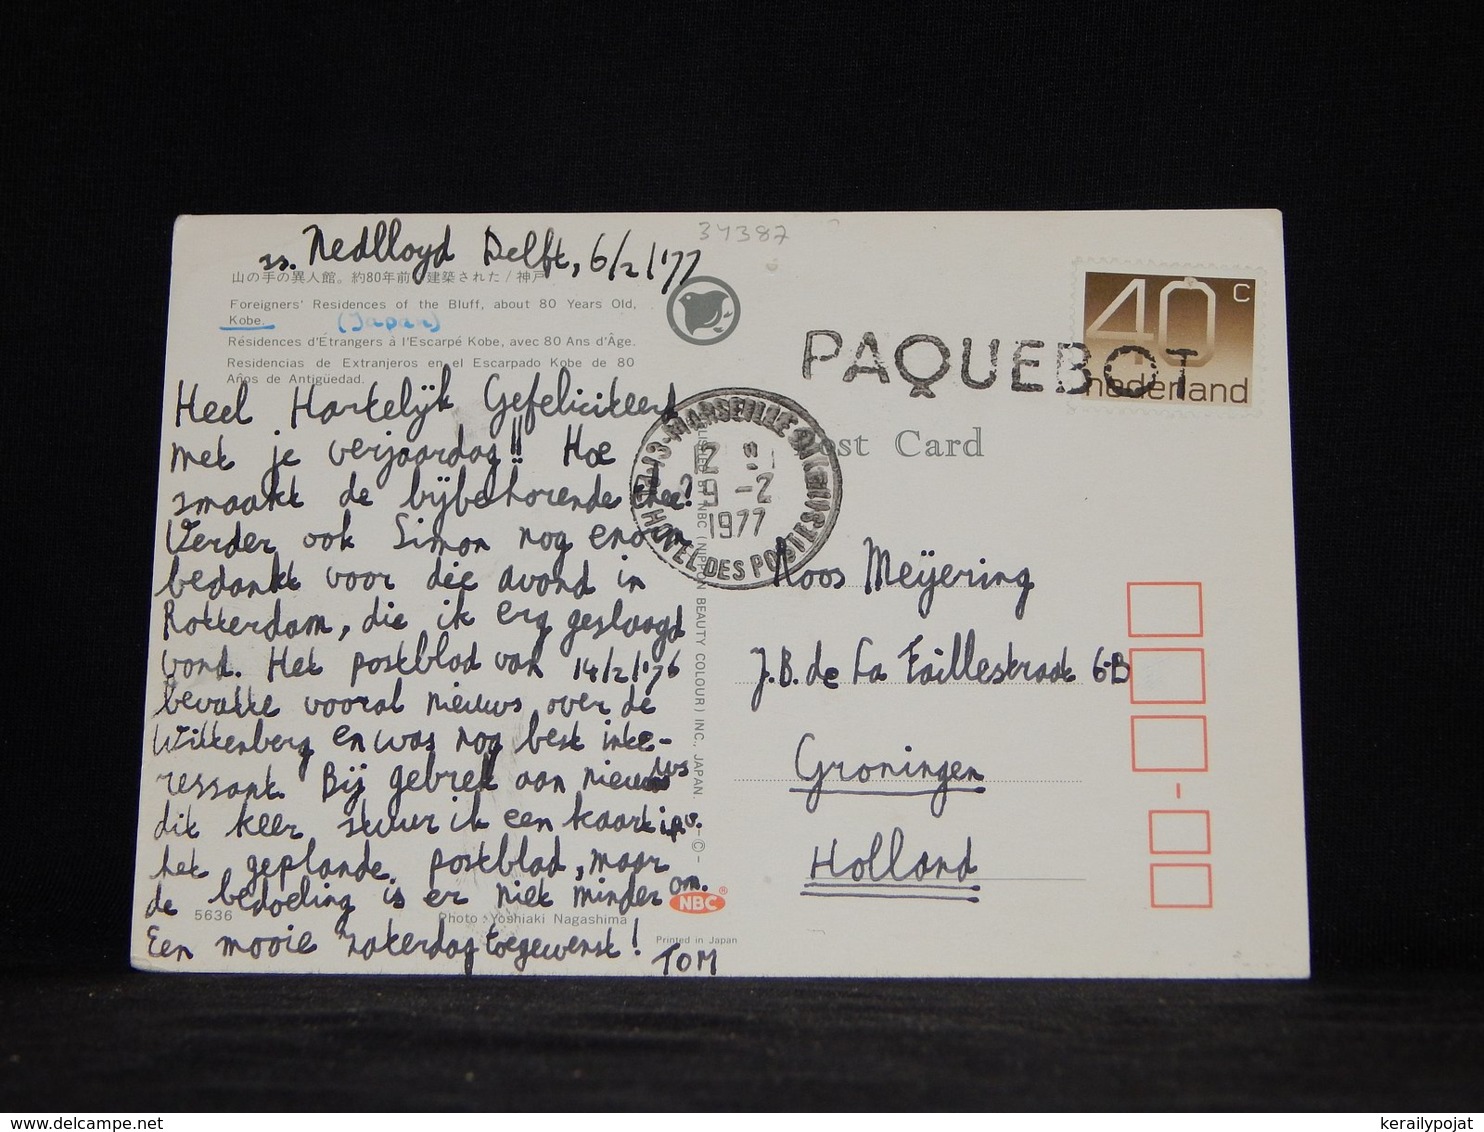 34387
ss. Nedlloyd Delft, 6/2/'77
山の手の異人館。約80年前に建築された/神戸
Foreigners' Residences of the Bluff, about 80 Years Old,
Kobe. (Japan)
Résidences d'Étrangers à l'Escarpé Kobe, avec 80 Ans d'Âge.
Residencias de Extranjeros en el Escarpado Kobe de 80
Años de Antigüedad.
Heel Hartelijk Gefeliciteerd
met je verjaardag!! Hoe
smaakt de bijbehorende thee?
Verder ook Simon nog enorm
bedankt voor die avond in
Rotterdam, die ik erg geslaagd
vond. Het postblad van 14/2/'76
bevatte vooral nieuws over de
Wittenberg en was nog best inte-
ressant. Bij gebrek aan nieuws
dit keer stuur ik een kaart i.p.v.
het geplande postblad, maar
de bedoeling is er niet minder om.
Een mooie zaterdag toegewenst!
TOM
5636
Photo: Yoshiaki Nagashima
NBC ®
Printed in Japan
BY NBC (NIPPON BEAUTY COLOUR) INC., JAPAN. -©-
PAQUEBOT
40 c
nederland
Post Card
13-MARSEILLE
HOTEL DES POSTES
9-2
1977
Roos Meijering
J.B. de La Faillestraat 6-B
Groningen
Holland
www.delcampe.net
kerailypojat